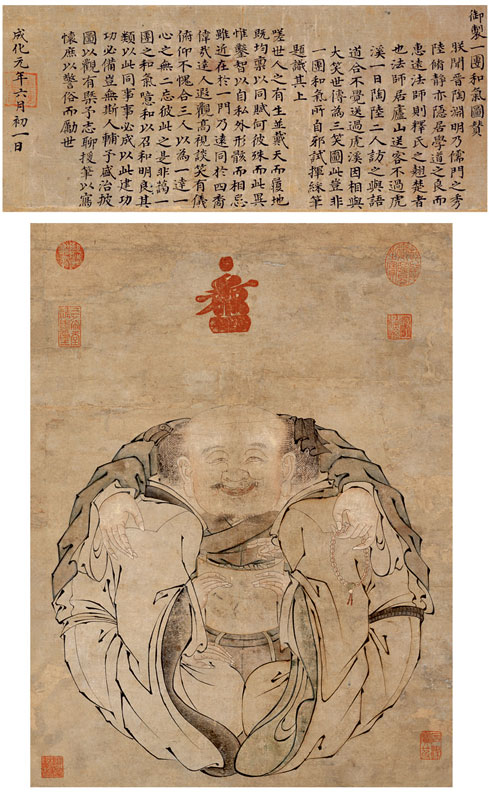 御製一團和氣圖贊
朕聞晉陶淵明乃儒門之秀
陸脩靜亦隱居學道之良而
惠遠法師則釋氏之翹楚者
也法師居廬山送客不過虎
溪一日陶陸二人訪之與語
道合不覺送過虎溪因相與
大笑世傳為三笑圖此豈非
一團和氣所自邪試揮綵筆
題識其上
嗟世人之有生並戴天而履地
既均稟以同賦何彼殊而此異
惟鑿智以自私外形骸而相忌
雖近在於一門乃遠同於四裔
偉哉達人遐觀高視談笑有儀
俯仰不愧合三人以為一達一
心之無二忘彼此之是非藹一
團之和氣噫和以召和明良其
類以此同事事必成以此建功
功必備豈無斯人輔予盛治披
圖以觀有槩予志聊援筆以寫
懷庶以警俗而勵世
成化元年六月初一日